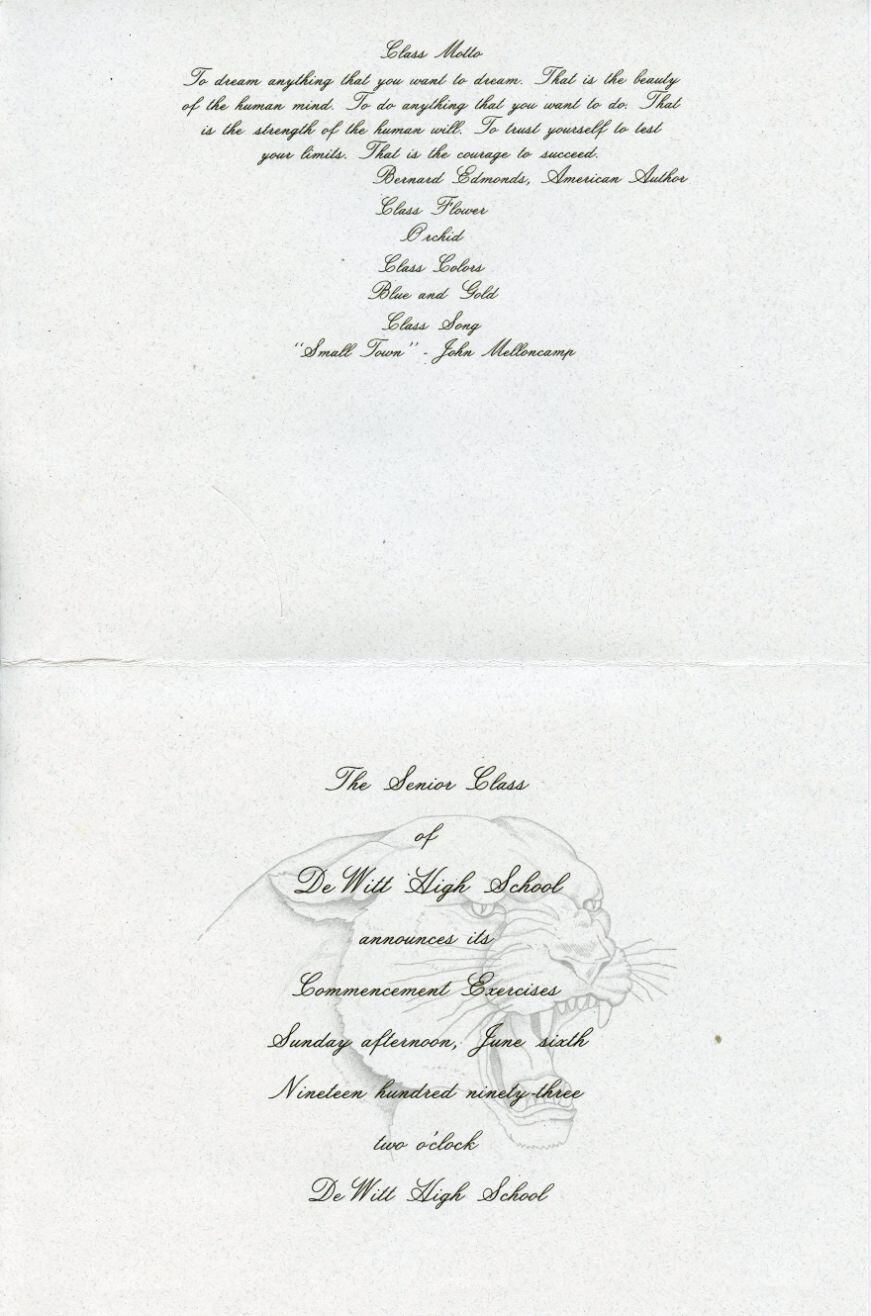 Class Motto
To dream anything that you want to dream. That is the beauty
of the human mind. To do anything that you want to do. That
is the strength of the human will. To trust yourself to test
your limits. That is the courage to succeed.
Bernard Edmonds, American Author
Class Flower
Orchid
Class Colors
Blue and Gold
Class Song
"Small Town" - John Melloncamp
The Senior Class
of
DeWitt High School
announces its
Commencement Exercises
Sunday afternoon, June sixth
Nineteen hundred ninety-three
two o'clock
DeWitt High School